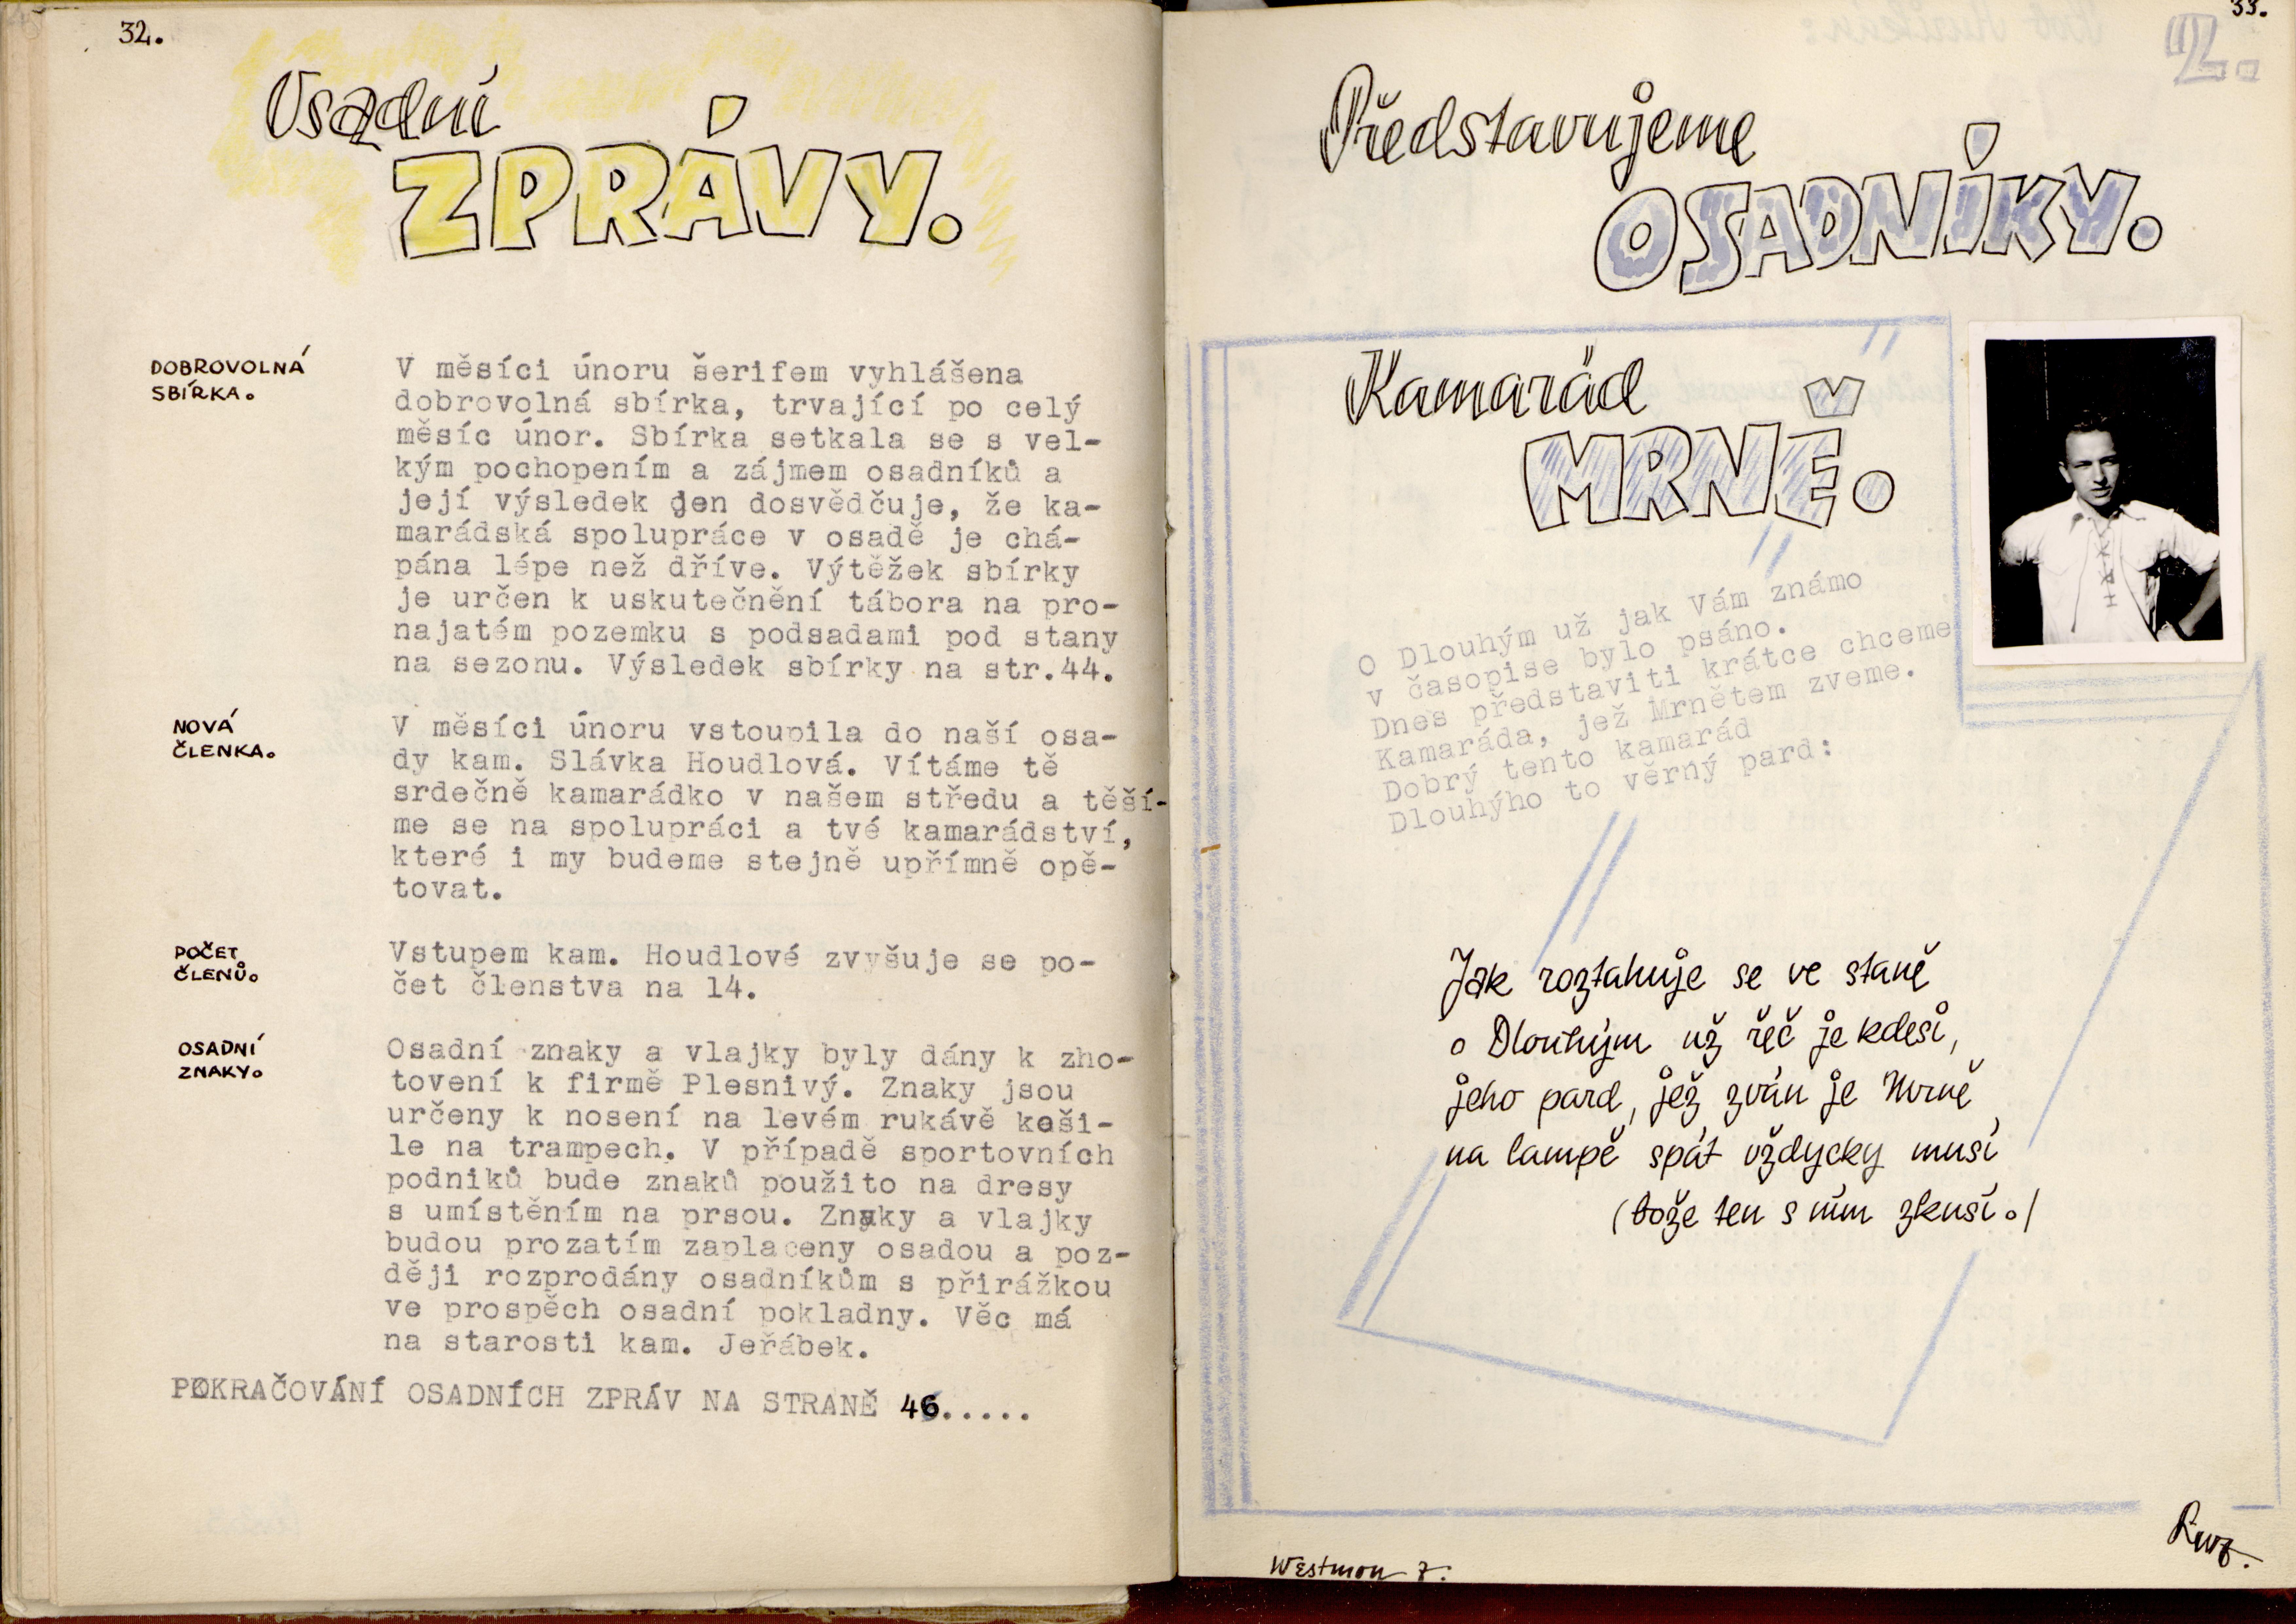 32.
Osadní
ZPRÁVY.
DOBROVOLNÁ
SBÍRKA.
V měsíci únoru šerifem vyhlášena
dobrovolná sbírka, trvající po celý
měsíc únor. Sbírka setkala se s vel-
kým pochopením a zájmem osadníků a
její výsledek jen dosvědčuje, že ka-
marádská spolupráce v osadě je chá-
pána lépe než dříve. Výtěžek sbírky
je určen k uskutečnění tábora na pro-
najatém pozemku s podsadami pod stany
na sezonu. Výsledek sbírky na str.44.
NOVÁ
ČLENKA.
V měsíci únoru vstoupila do naší osa-
dy kam. Slávka Houdlová. Vítáme tě
srdečně kamarádko v našem středu a těší-
me se na spolupráci a tvé kamarádství,
které i my budeme stejně upřímně opě-
tovat.
POČET
ČLENŮ.
Vstupem kam. Houdlové zvyšuje se po-
čet členstva na 14.
OSADNÍ
ZNAKY.
Osadní znaky a vlajky byly dány k zho-
tovení k firmě Plesnivý. Znaky jsou
určeny k nosení na levém rukávě koši-
le na trampech. V případě sportovních
podniků bude znaků použito na dresy
s umístěním na prsou. Znaky a vlajky
budou prozatím zaplaceny osadou a poz-
ději rozprodány osadníkům s přirážkou
ve prospěch osadní pokladny. Věc má
na starosti kam. Jeřábek.
POKRAČOVÁNÍ OSADNÍCH ZPRÁV NA STRANĚ 46.....
33.
2.
Představujeme
OSADNÍKY.
Kamarád
MRNĚ.
O Dlouhým už jak Vám známo
v časopise bylo psáno.
Dnes představiti krátce chceme
Kamaráda, jež Mrnětem zveme.
Dobrý tento kamarád
Dlouhýho to věrný pard:
Jak roztahuje se ve staně
o Dlouhým už řeč je kdesi,
jeho pard, jež zván je Mrně
na lampě spát vždycky musí
(bože ten s ním zkusí.)
Westmon 7.